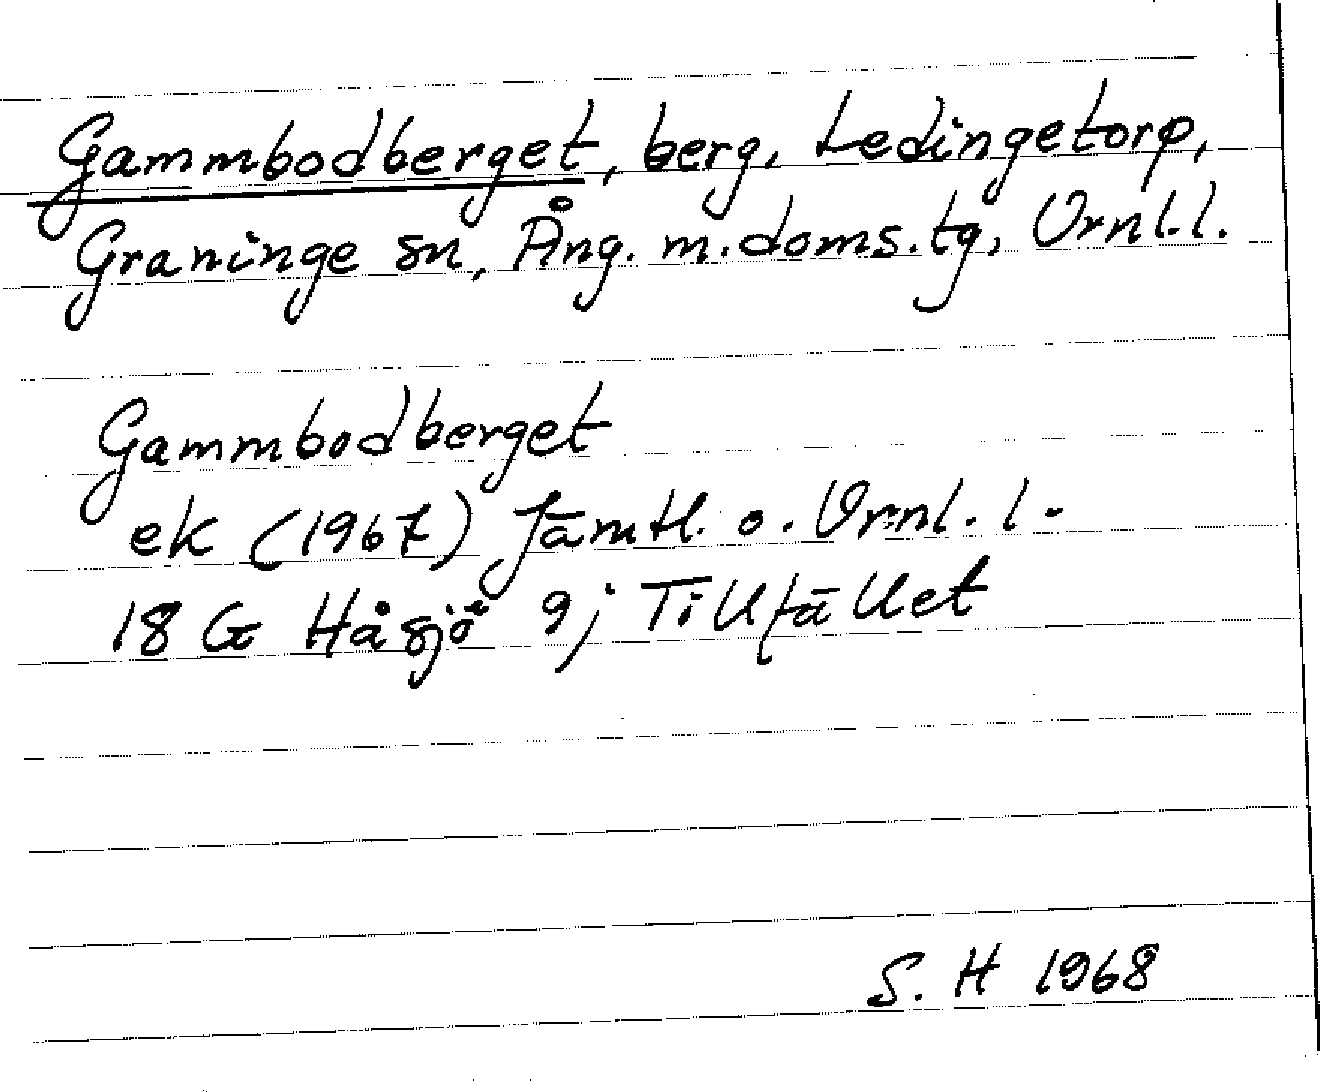 Gammbodberget, berg, Ledingetorp,
Graninge sn, Ång. m. doms. tg, Vrnl.l.
Gammbodberget
ek (1967) Jämtl. o. Vrnl. l.
18 G Håsjö 9j Tillfället
S. H 1968